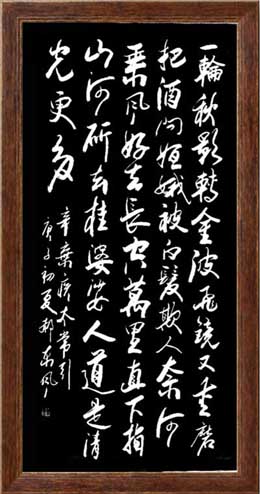 一輪秋影轉金波飛鏡又重磨
把酒问姮娥被白髮欺人奈何
乘风好去長空萬里直下
山河斫去桂婆娑人道是清
光更多
辛棄疾太常引
庚子初夏郑东风